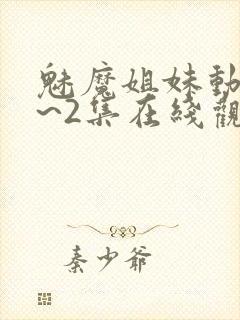 魅魔姐妹動
~2集在綫觀
秦少爺